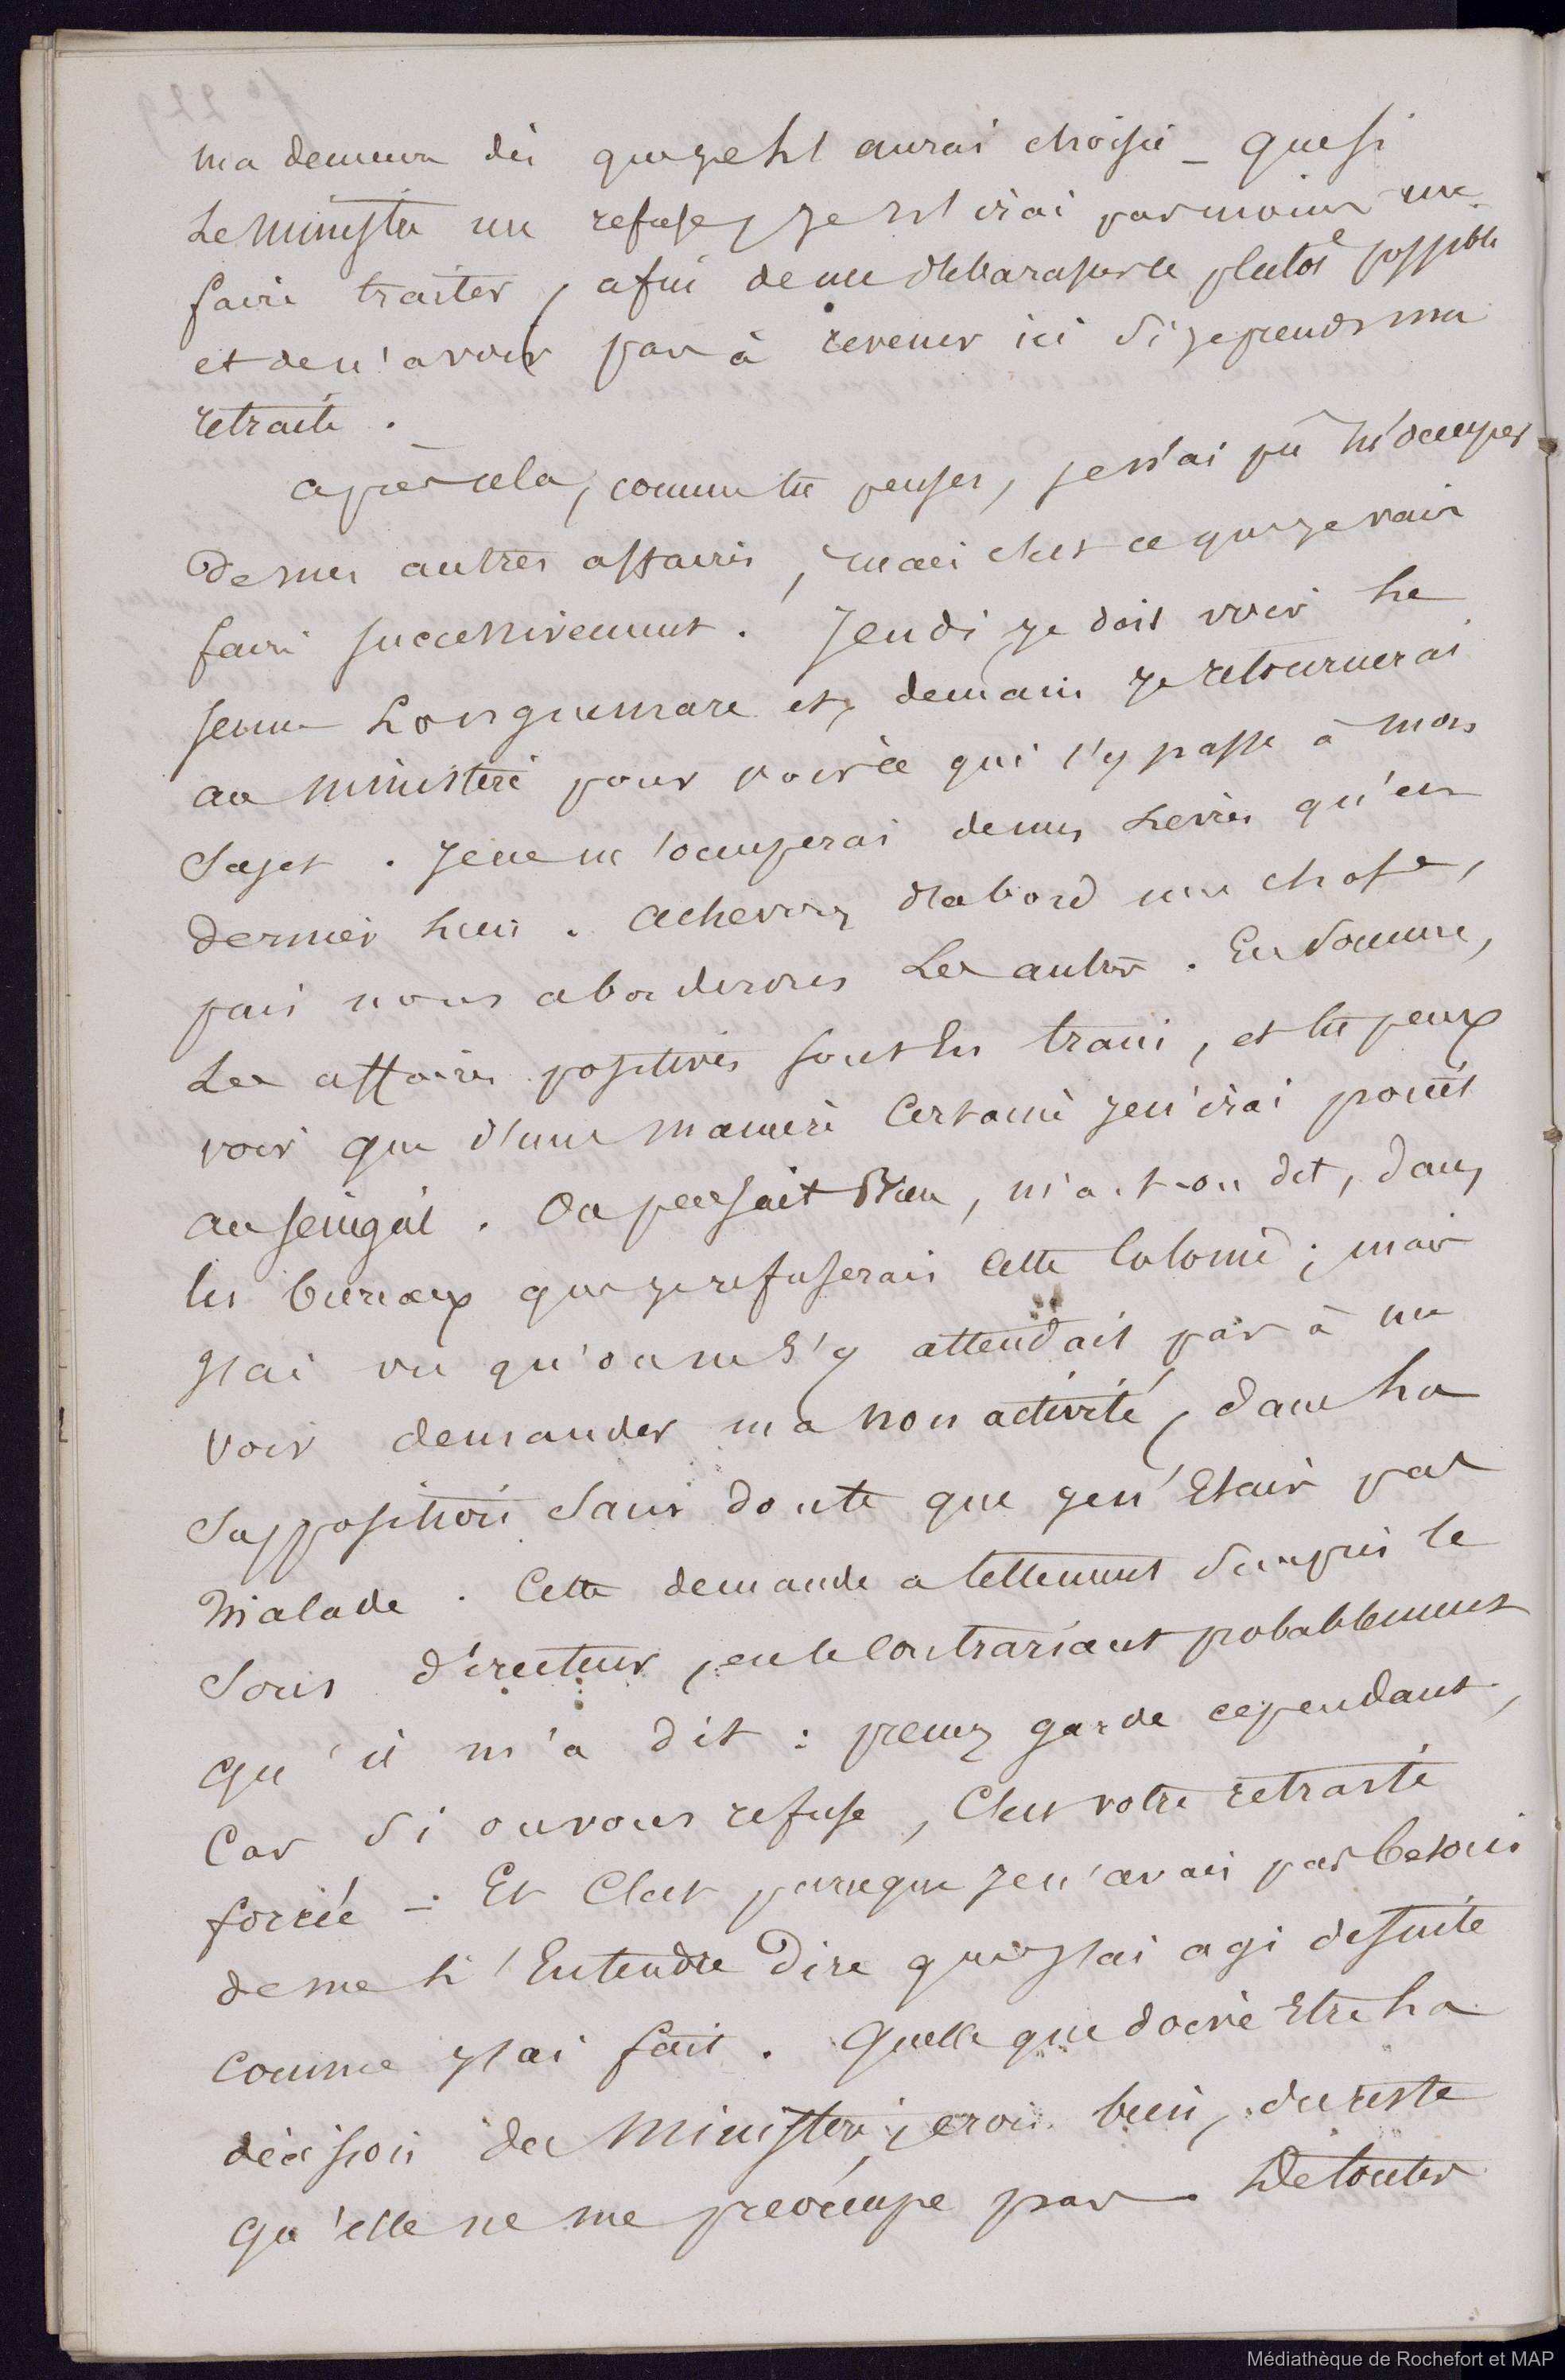 ma demeure dès que je l'aurai choisie – que si
le ministre me refuse, je n'irai pas moins me
faire traiter, afin de me débarasser le plutôt possible
et de n'avoir pas à revenir ici si je prends ma
retraite.
après cela, comme tu penses, je n'ai pu m'occuper
de mes autres affaires, mais c'est ce que je vais
faire successivement. Jeudi je dois voir le
jeune Longuemare et, demain je retournerai
au ministère pour voir ce qui s'y passe à mon
sujet. Je ne m'occuperai de mes livres qu'en
dernier lieu. achevons d'abord une chose,
puis nous aborderons les autres. En somme,
les affaires positives sont en train, et tu peux
voir que d'une manière certaine je n'irai point
au sénégal. On pensait bien, m'a-t-on dit, dans
les bureaux que je refuserais cette colonie; mais
j'ai vu qu'on ne s'y attendait pas à me
voir demander ma non activité, dans la
supposition sans doute que je n'étais pas
malade. Cette demande a tellement surpris le
sous directeur, en le contrariant probablement
qu'il m'a dit : prenez garde cependant,
car si on vous refuse, c'est votre retraite
forcée –. Et c'est parceque je n'avais pas besoin
de me l'entendre dire que j'ai agi de suite
comme j'ai fait. Quelle que doive être la
décision du Ministère, crois bien, du reste
qu'elle ne me préoccupe pas. De toutes
Médiathèque de Rochefort et MAP